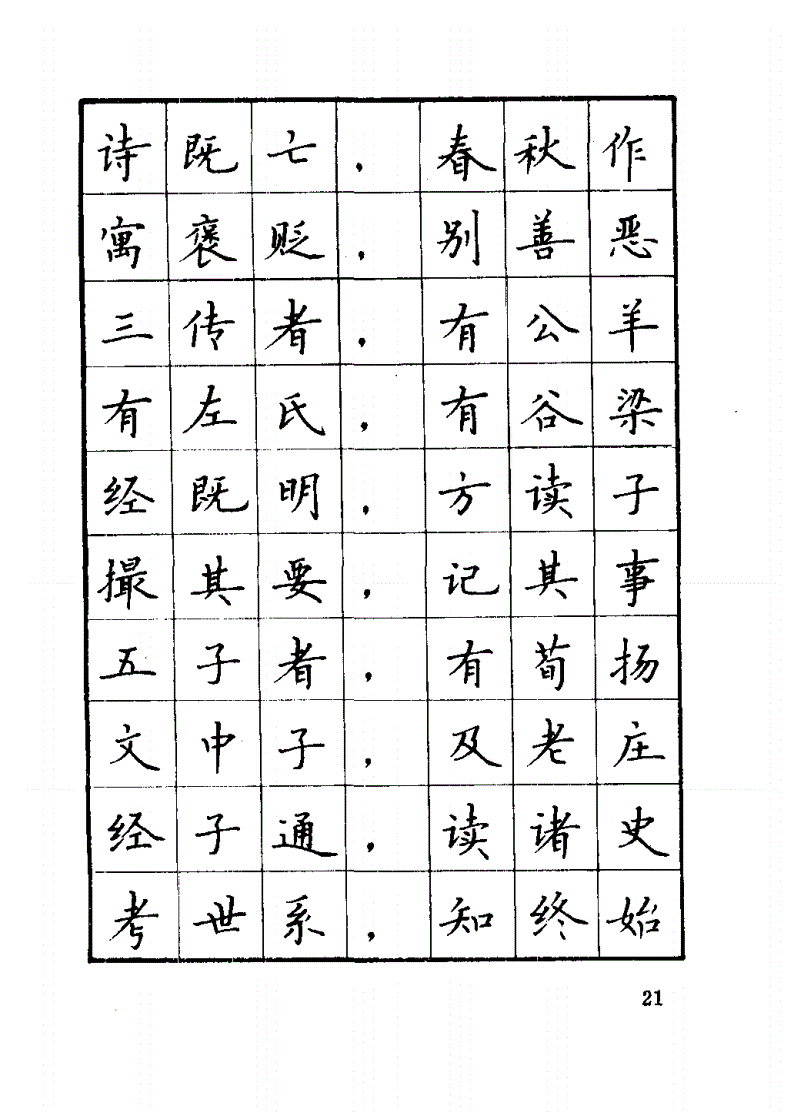 诗既亡，春秋作
寓褒贬，别善恶
三传者，有公羊
有左氏，有谷梁
经既明，方读子
撮其要，记其事
五子者，有荀扬
文中子，及老庄
经子通，读诸史
考世系，知终始
21